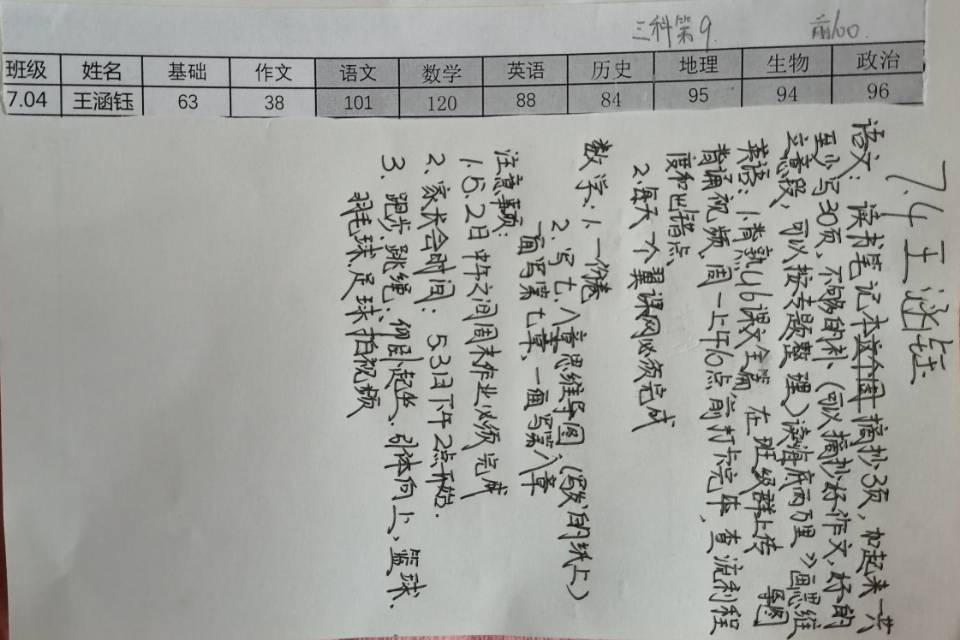 三科第9 前100
班级 姓名 基础 作文 语文 数学 英语 历史 地理 生物 政治
7.04 王涵钰 63 38 101 120 88 84 95 94 96
7.4 王涵钰
语文：读书笔记本这个周摘抄3页，加起来一共
至少写30页，不够的补、(可以摘抄好作文，好的
立意段，可以按专题整理)读海底两万里》画思维
导图
英语：1.背熟U6课文全篇，在班级群上传
背诵视频，周一上午6点前打卡完毕，查流利程
度和出错点、
2.每天一个翼课网必须完成
数学：1.一份卷
2.写七、八章思维导图(写发的纸上)
一面写第七章，一面写第八章
注意事项：
1.6.2日中午之间周末作业必须完成
2.家长会时间：5.31日下午2点开始.
3.跑步、跳绳、仰卧起坐、引体向上、篮球、
羽毛球、足球拍视频